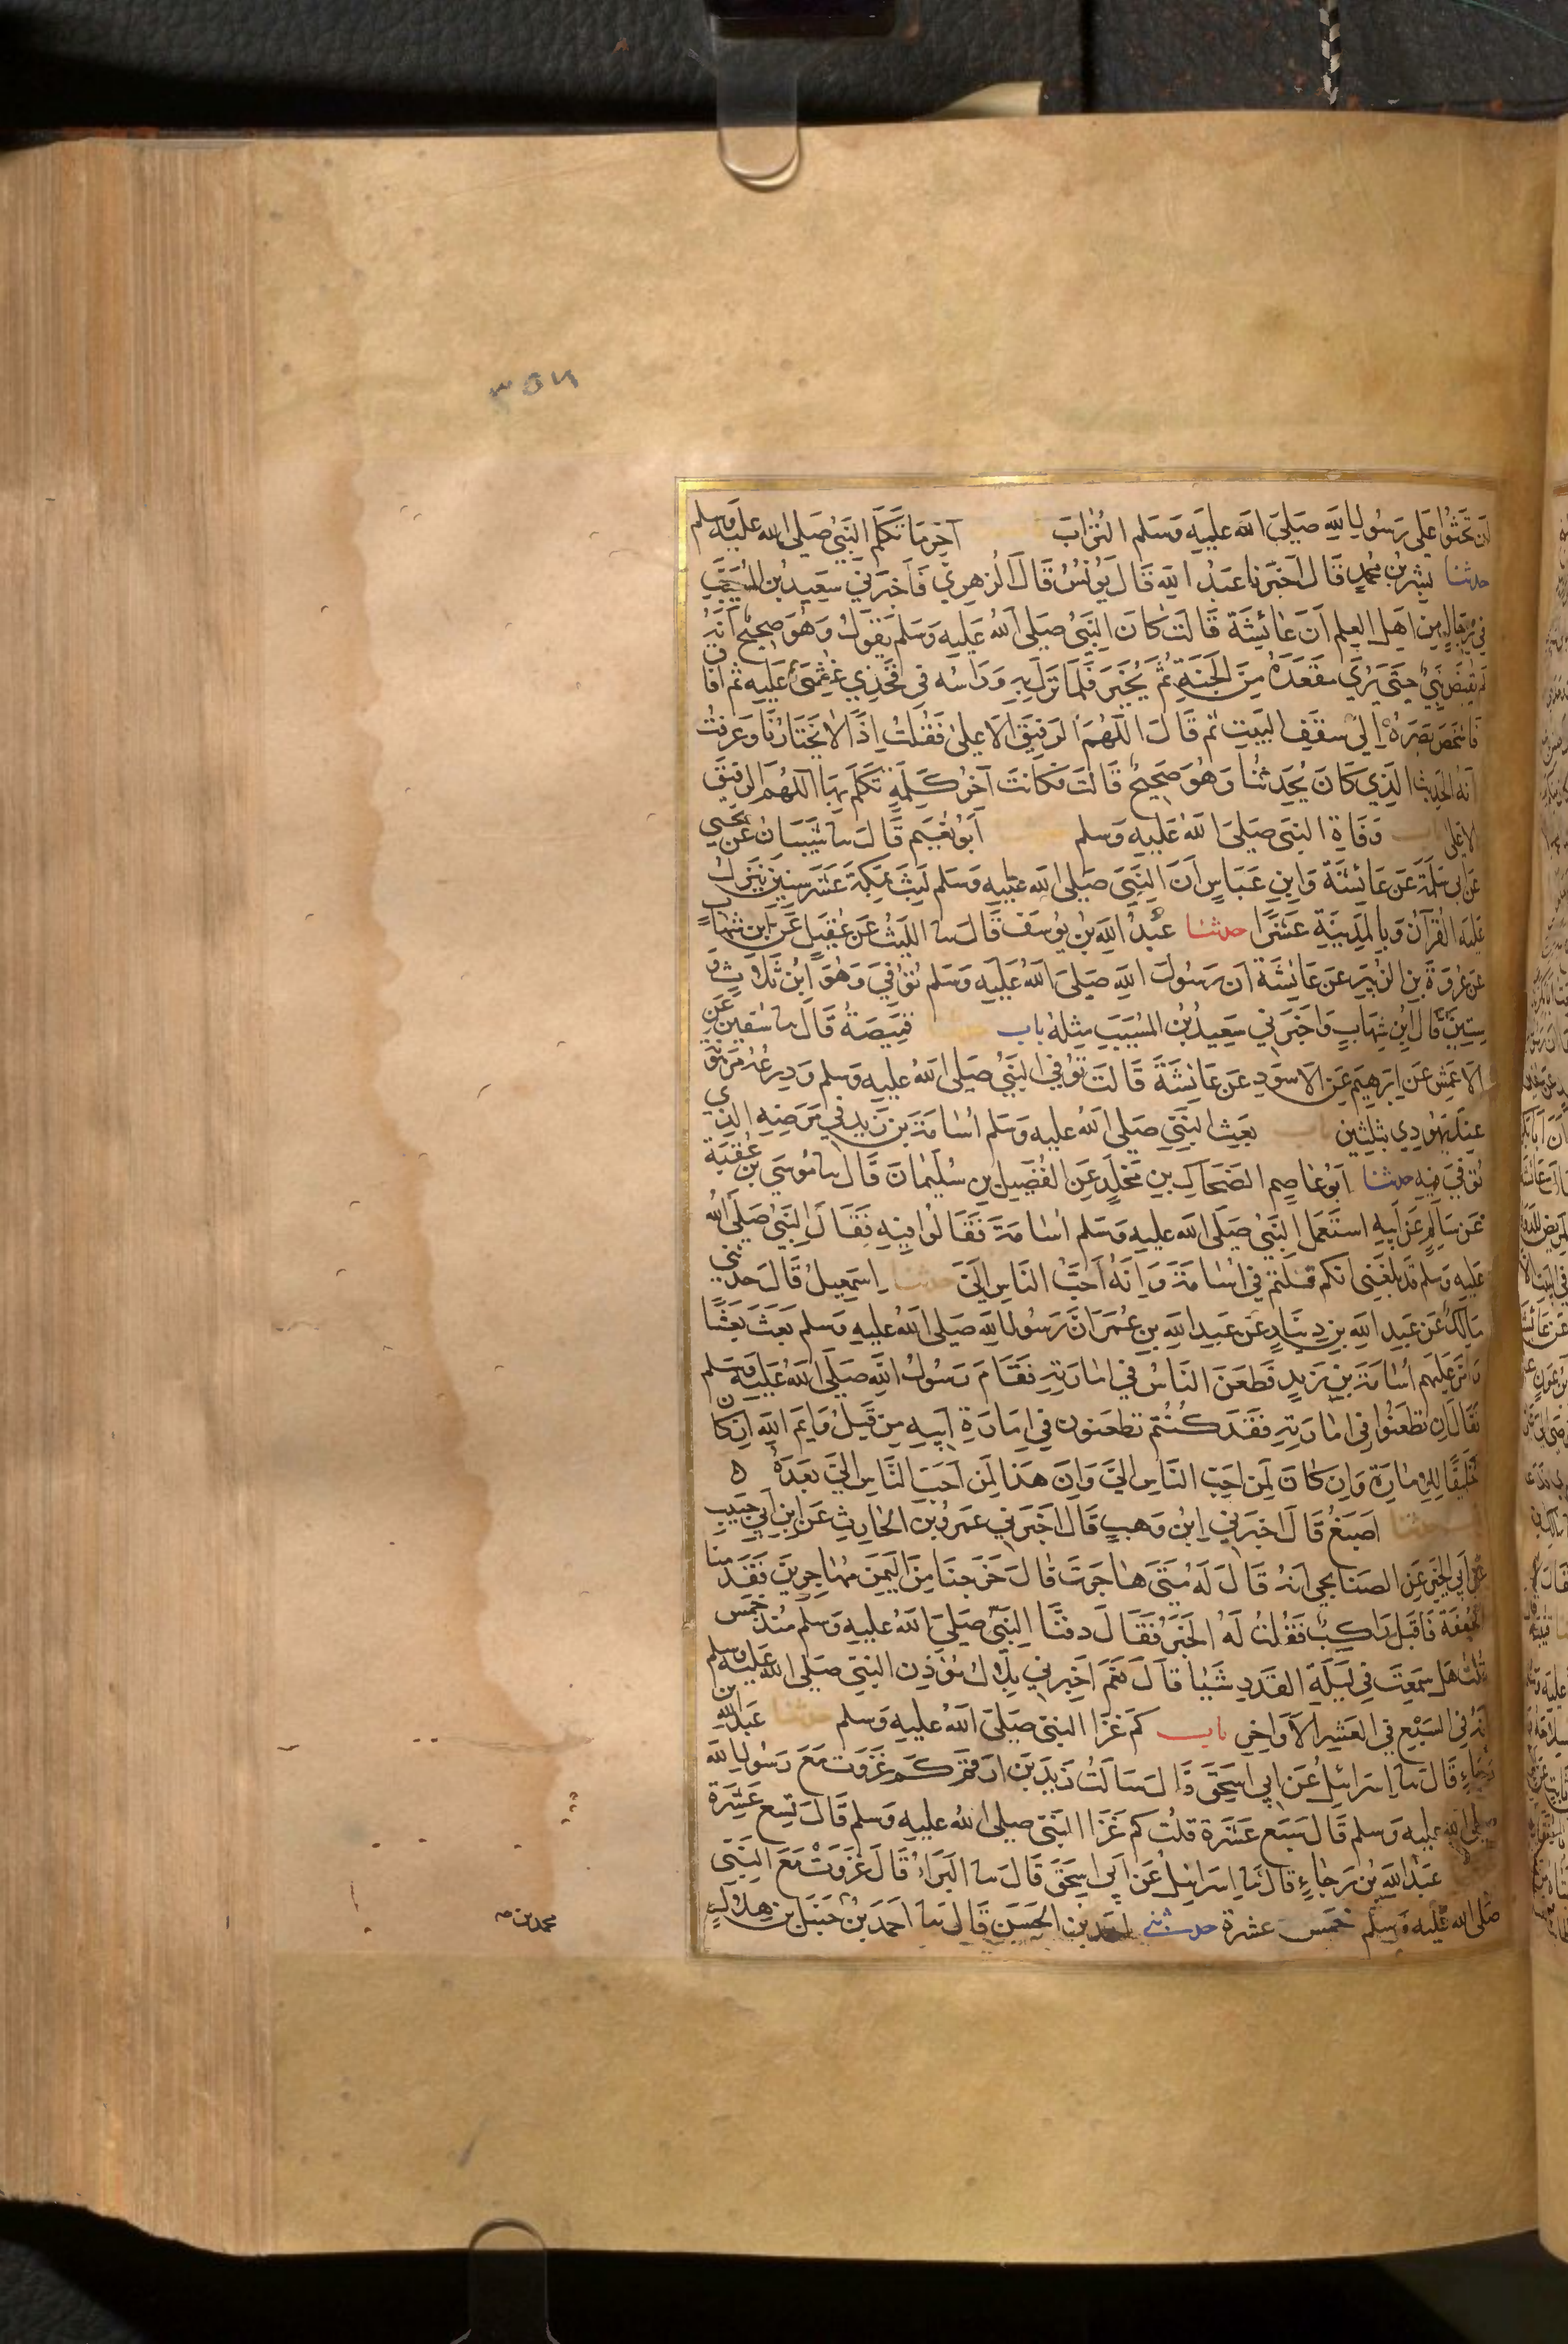 ٣٥٦
ان تحثوا على رسول الله صلى الله عليه وسلم التراب آخر ما تكلم النبي صلى الله عليه وسلم
حدثنا بشر بن محمد قال اخبرنا عبد الله قال يونس قال الزهري فاخبرني سعيد بن المسيب
في رجال من اهل العلم ان عائشة قالت كان النبي صلى الله عليه وسلم يقول وهو صحيح انه
لم يقبض نبي حتى يرى مقعده من الجنة ثم يخير فلما نزل به وراسه في فخذي غشي عليه ثم افاق
فاشخص بصره الى سقف البيت ثم قال اللهم الرفيق الاعلى فقلت اذا لا يختارنا وعرفت
انه الحديث الذي كان يحدثنا وهو صحيح قالت فكانت آخر كلمة تكلم بها اللهم الرفيق
الاعلى باب وفاة النبي صلى الله عليه وسلم ابو نعيم قال سا شيبان عن يحيى
عن ابي سلمة عن عائشة وابن عباس ان النبي صلى الله عليه وسلم لبث بمكة عشر سنين ينزل
عليه القرآن وبالمدينة عشرا حدثنا عبد الله بن يوسف قال سا الليث عن عقيل عن ابن شهاب
عن عروة بن الزبير عن عائشة ان رسول الله صلى الله عليه وسلم توفي وهو ابن ثلاث و
ستين قال ابن شهاب واخبرني سعيد بن المسيب مثله باب قبيصة قال سا سفين عن
الاعمش عن ابرهيم عن الاسود عن عائشة قالت توفي النبي صلى الله عليه وسلم ودرعه مرهونة
عند يهودي بثلثين باب بعث النبي صلى الله عليه وسلم اسامة بن زيد في مرضه الذي
توفي فيه حدثنا ابو عاصم الضحاك بن مخلد عن الفضيل بن سليمان قال سا موسى بن عقبة
عن سالم عن ابيه استعمل النبي صلى الله عليه وسلم اسامة فقالوا فيه فقال النبي صلى الله
عليه وسلم قد بلغني انكم قلتم في اسامة وانه احب الناس الي حدثنا اسمعيل قال حدثني
مالك عن عبد الله بن دينار عن عبد الله بن عمر ان رسول الله صلى الله عليه وسلم بعث بعثا
وامر عليهم اسامة بن زيد فطعن الناس في امارته فقام رسول الله صلى الله عليه وسلم
فقال ان تطعنوا في امارته فقد كنتم تطعنون في امارة ابيه من قبل وايم الله ان كان
لخليقا للامارة وان كان لمن احب الناس الي وان هذا لمن احب الناس الي بعده ٥
حدثنا اصبغ قال اخبرني ابن وهب قال اخبرني عمرو بن الحارث عن ابن ابي حبيب
عن ابي الخير عن الصنابحي انه قال له متى هاجرت قال خرجنا من اليمن مهاجرين فقدمنا
الجحفة فاقبل راكب فقلت له الخبر فقال دفنا النبي صلى الله عليه وسلم منذ خمس
قلت هل سمعت في ليلة القدر شيا قال نعم اخبرني بلال مؤذن النبي صلى الله عليه وسلم
انه في السبع في العشر الاواخر باب كم غزا النبي صلى الله عليه وسلم حدثنا عبد الله بن
رجاء قال سا اسرائيل عن ابي اسحق قال سالت زيد بن ارقم كم غزوت مع رسول الله
صلى الله عليه وسلم قال سبع عشرة قلت كم غزا النبي صلى الله عليه وسلم قال تسع عشرة
عبد الله بن رجاء قال سا اسرائيل عن ابي اسحق قال سا البراء قال غزوت مع النبي
صلى الله عليه وسلم خمس عشرة حدثني احمد بن الحسن قال سا احمد بن حنبل بن هلال
محمد بن